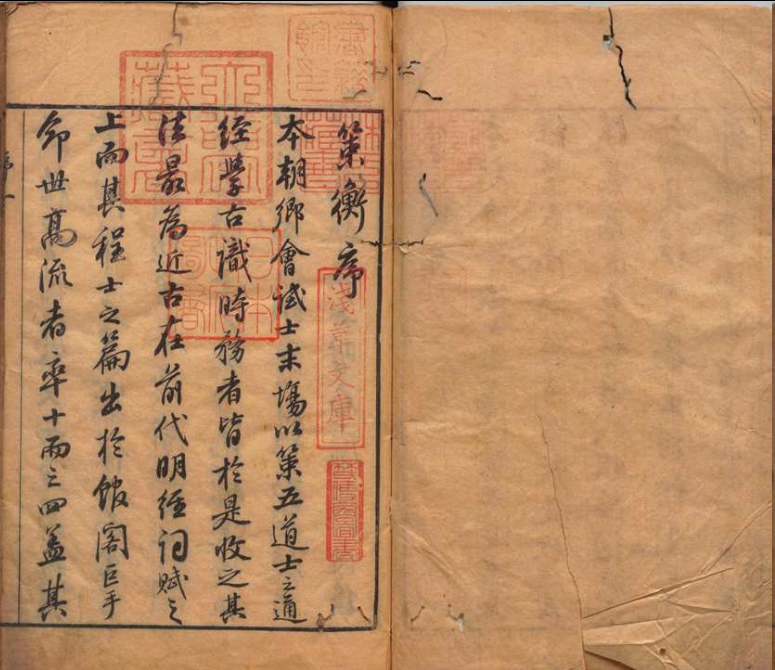 策衡序
本朝鄉會試士末場以策五道士之通
經學古識時務者皆於是收之其
法最為近古在前代明經詞賦之
上而其程士之篇出於館閣巨手
命世高流者率十而三四蓋其
序 一
淺草文庫
日本政府圖書